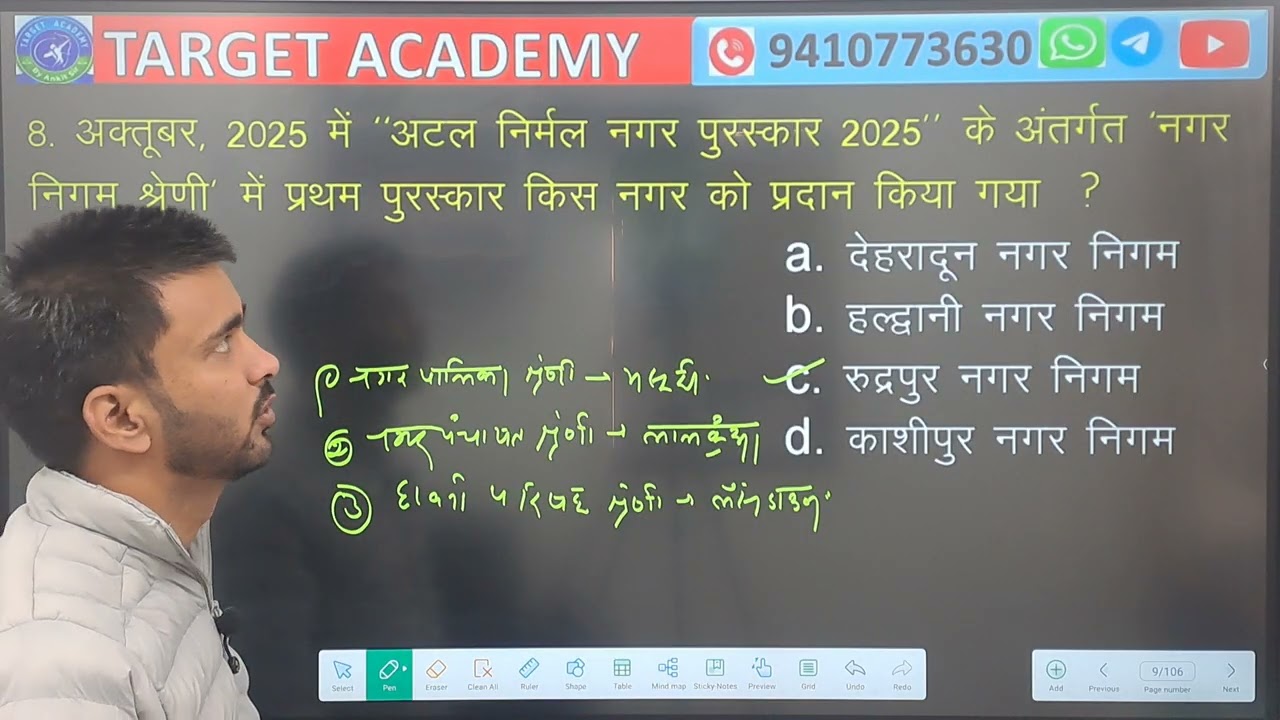 TARGET ACADEMY
By Ankit Sir
TARGET ACADEMY
9410773630
8. अक्तूबर, 2025 में ‘‘अटल निर्मल नगर पुरस्कार 2025’’ के अंतर्गत ‘नगर
निगम श्रेणी’ में प्रथम पुरस्कार किस नगर को प्रदान किया गया ?
a. देहरादून नगर निगम
b. हल्द्वानी नगर निगम
c. रुद्रपुर नगर निगम
d. काशीपुर नगर निगम
① नगर पालिका श्रेणी →
② नगर पंचायत श्रेणी → लालकुँआ
③ छावनी परिषद श्रेणी → लैंसडाउन
Select Pen Eraser Clean All Ruler Shape Table Mind map Sticky-Notes Preview Grid Undo Redo
Add Previous 9/106 Page number Next